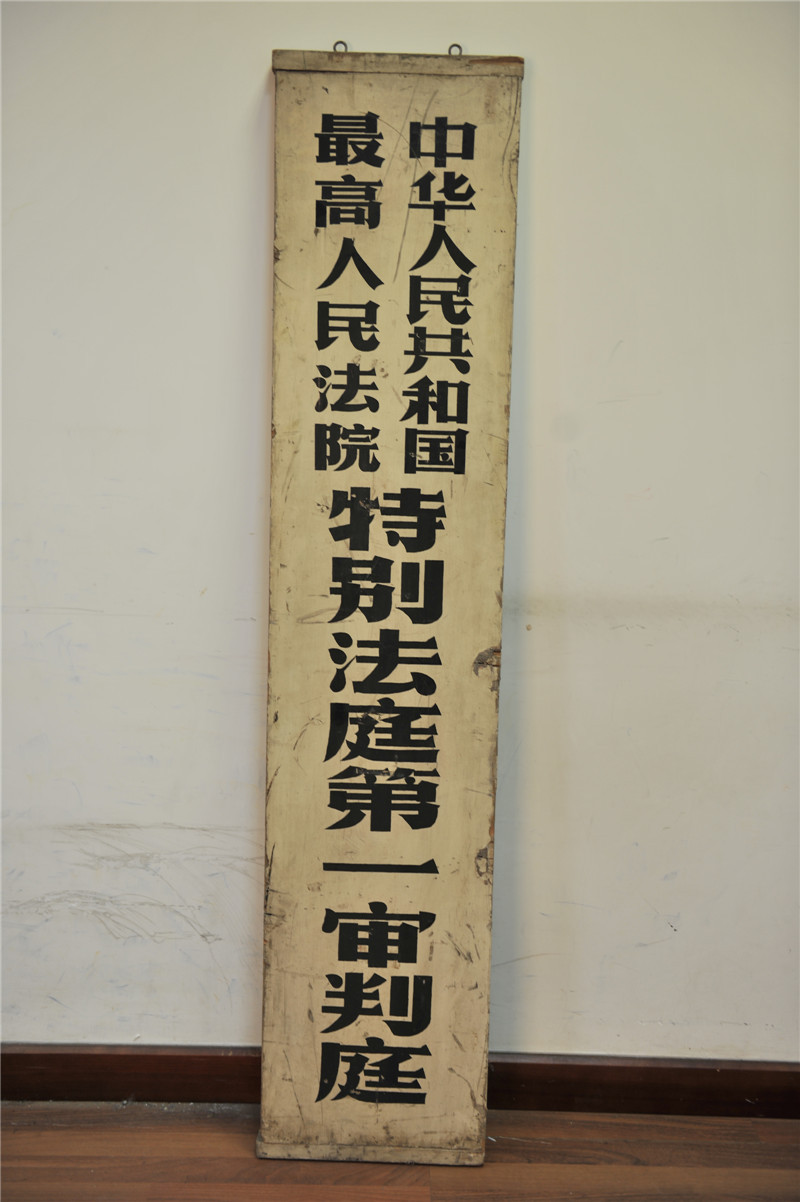 中华人民共和国
最高人民法院
特别法庭第一审判庭